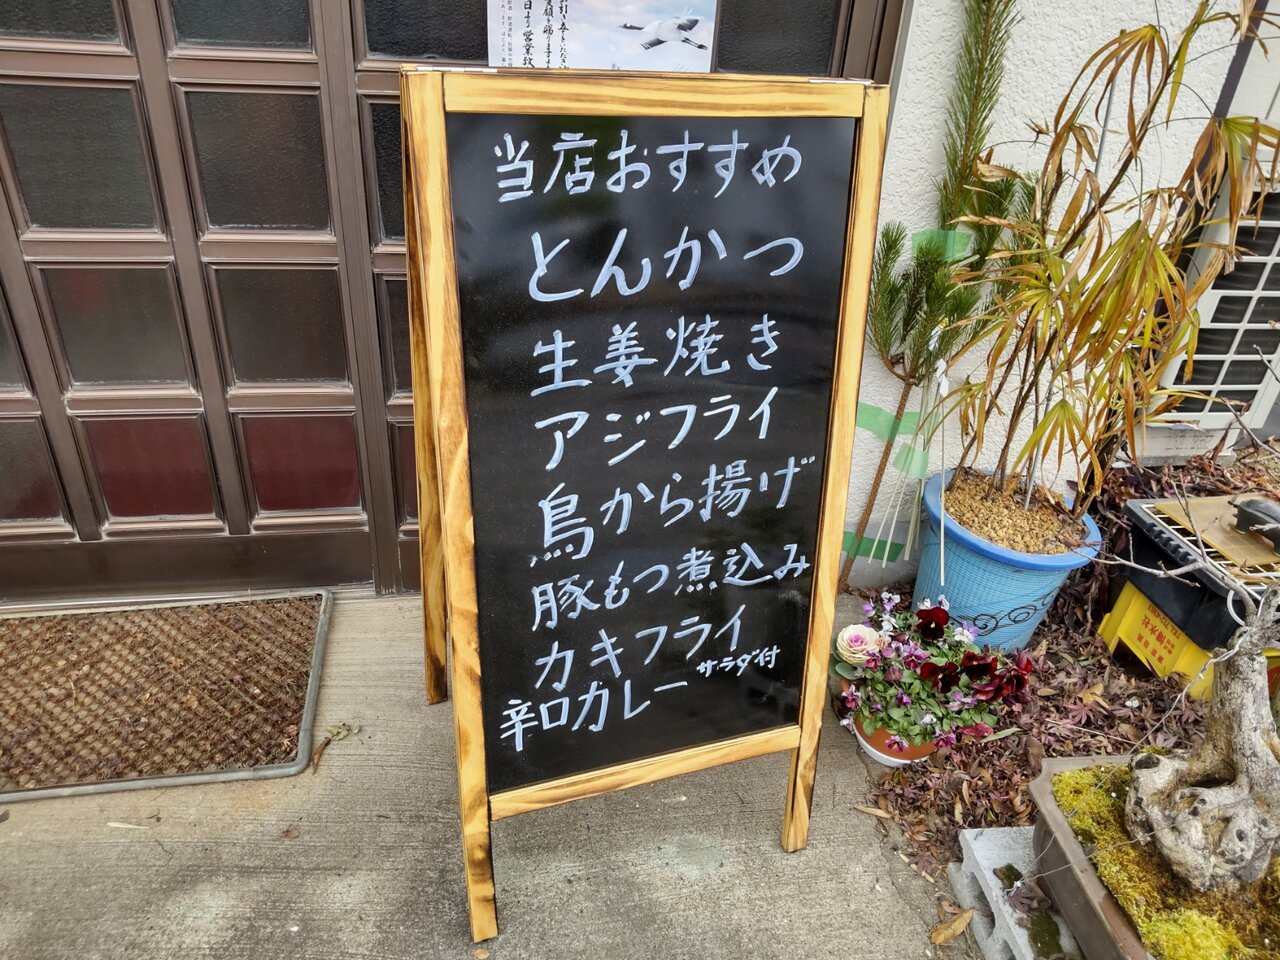 日より営業致
当店おすすめ
とんかつ
生姜焼き
アジフライ
鳥から揚げ
豚もつ煮込み
カキフライ
辛口カレー サラダ付